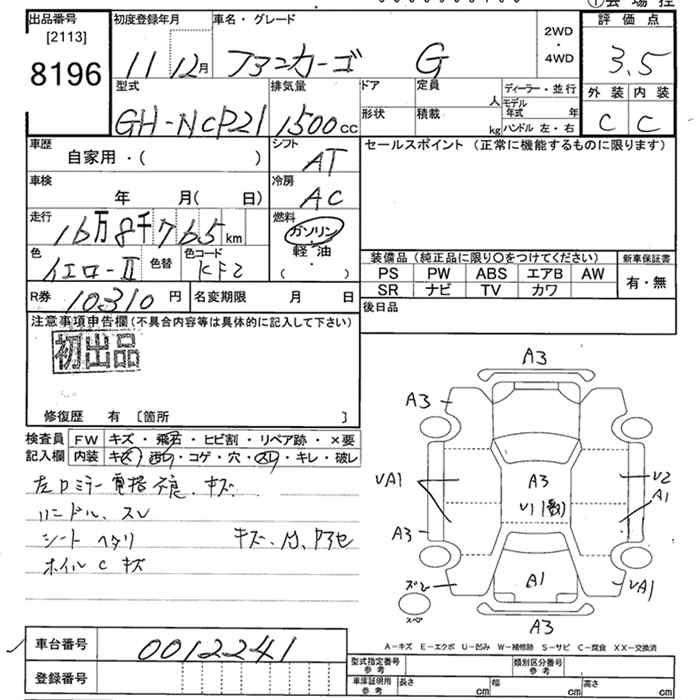 出品番号
[2113]
8196
初度登録年月
11 12月
車名・グレード
ファンカーゴ G
2WD
・
4WD
評価点
3.5
外装 内装
C C
型式
GH-NCP21
排気量
1500cc
ドア
形状
定員
人
積載
kg
ディーラー・並行
モデル年式 年
ハンドル 左・右
車歴
自家用・( )
シフト
AT
セールスポイント (正常に機能するものに限ります)
車検
年 月( 日)
冷房
AC
走行
16万8千765km
燃料
ガソリン
軽油
( ・ )
色
イエローII
色替
色コード
KF2
R券 10,310円
名変期限 月 日
装備品 (純正品に限り〇をつけてください)
新車保証書
PS PW ABS エアB AW
SR ナビ TV カワ
有・無
後日品
注意事項申告欄 (不具合内容等は具体的に記入して下さい)
初出品
修復歴 有 [箇所 ]
検査員
記入欄
FW キズ・飛石・ヒビ割・リペア跡・×要
内装 キズ・汚レ・コゲ・穴・スレ・キレ・破レ
左ドミラー電格不良、キズ
ハンドル、スレ
シート ヘタリ
ホイル C キズ
A3
A3
VA1
A3
A3
V1(数)
A1
V2
A1
VA1
ズミ
スペア
A3
A-キズ E-エクボ U-凹み W-補修跡 S-サビ C-腐食 XX-交換済
車台番号 0012241
登録番号
型式指定番号
参考
類別区分番号
参考
車庫証明用
参考
長さ cm 幅 cm 高さ cm